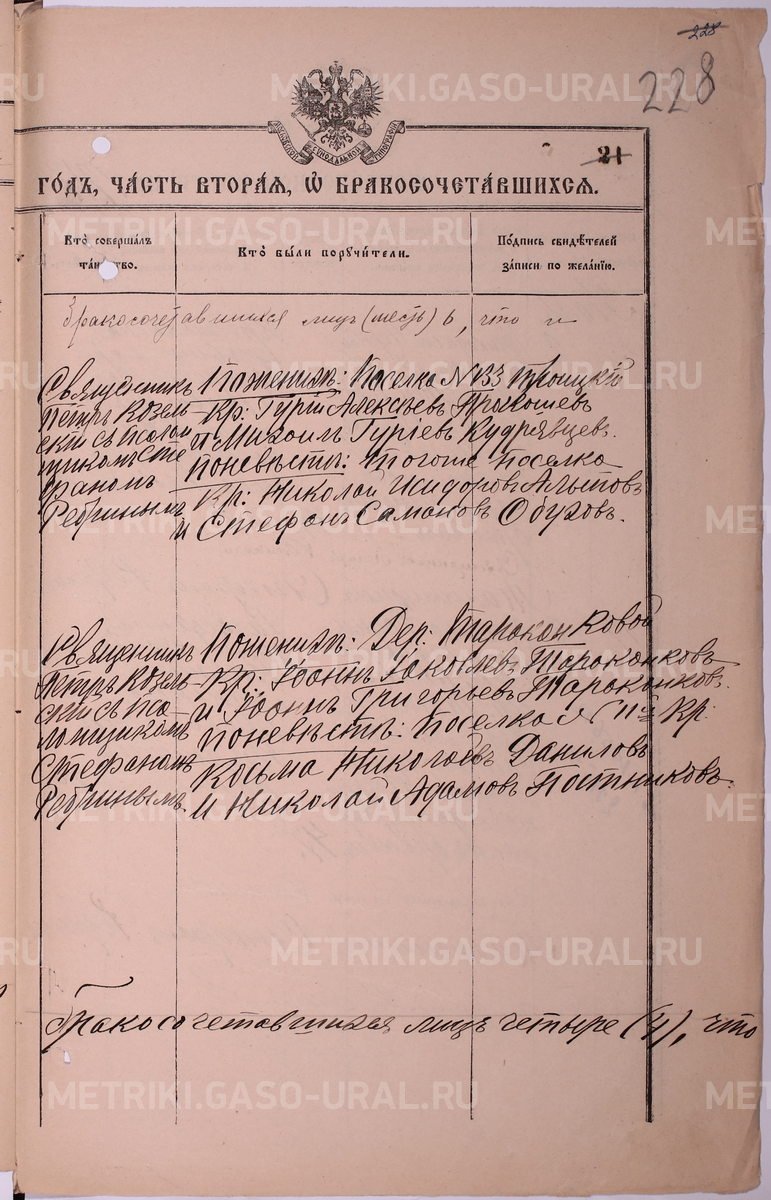 228
228
21
ГО́ДЪ, ЧА́СТЬ ВТОРА́Я, Ѡ҆ БРАКОСОЧЕТА́ВШИХСЯ.
Кто̀ соверша́лъ
та́инство.
Кто̀ бы́ли поручи́тели.
По́дпись свидѣ́телей
за́писи по жела́нію.
Бракосочетавшихся лицъ (шесть) 6, что и
Священникъ
Петръ Козель
скій съ псалом
щикомъ Сте
фаномъ
Ребринымъ
По женихѣ: Поселка N 133 Троицкій
Кр: Гурій Алексѣевъ
и Михаилъ Гуріевъ Кудрявцевъ.
По невѣстѣ: того же поселка
Кр: Николай Исидоровъ
и Стефанъ Обуховъ.
Священникъ
Петръ Козель
скій съ пса
ломщикомъ
Стефаномъ
Ребринымъ
По женихѣ: Дер: Таракан ковой
Кр: Іоаннъ Іаковлевъ Таракановъ
и Іоаннъ Григорьевъ Таракановъ.
По невѣстѣ: поселка N 11й Кр:
Косьма Николаевъ Даниловъ
и Николай Адамовъ Постниковъ.
Бракосочетавшихся лицъ четыре (4), что
METRIKI.GASO-URAL.RU